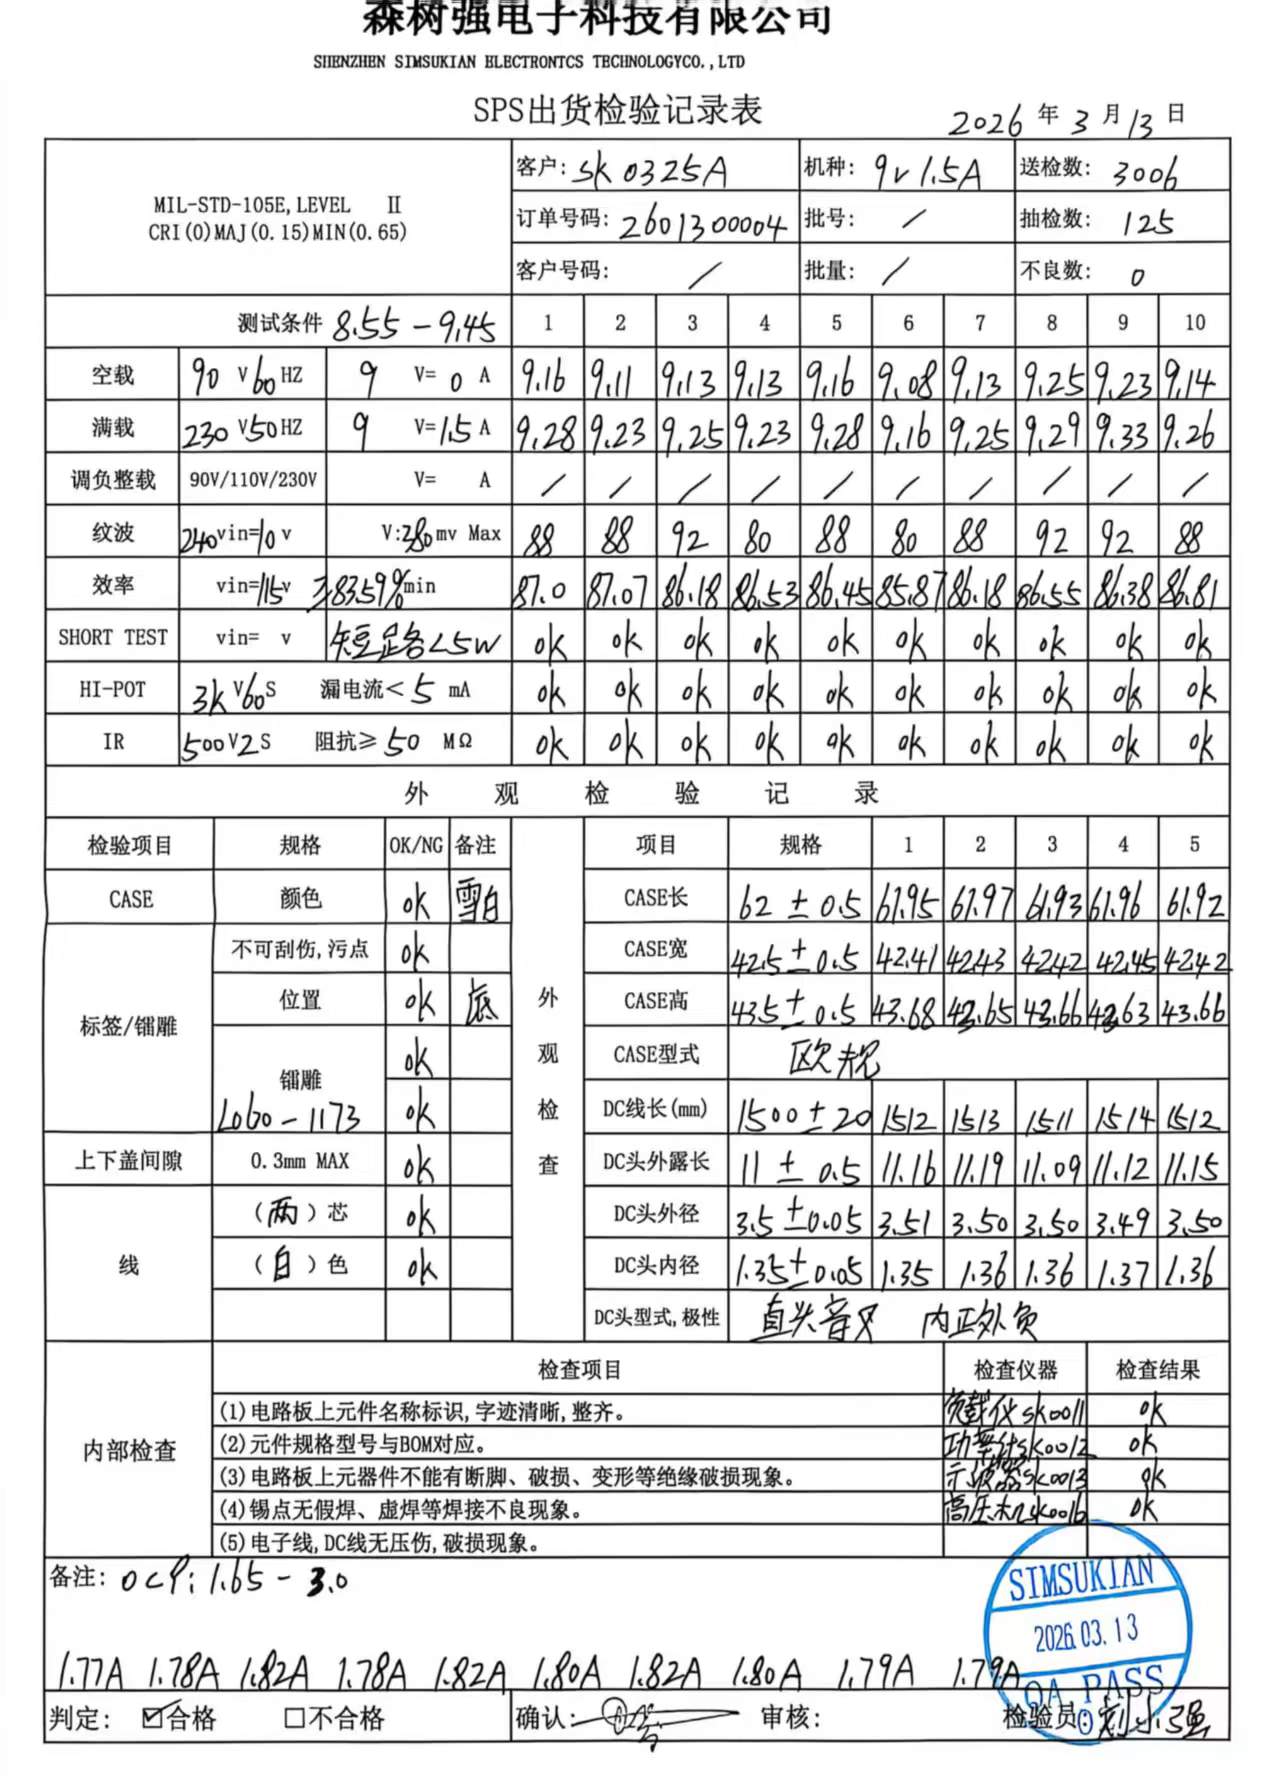 森树强电子科技有限公司
SHENZHEN SIMSUKIAN ELECTRONTCS TECHNOLOGYCO.,LTD
SPS出货检验记录表
2026 年 3 月 13 日
MIL-STD-105E,LEVEL Ⅱ
CRI(0)MAJ(0.15)MIN(0.65)
客户: SK0325A 机种: 9V1.5A 送检数: 3006
订单号码: 2601300004 批号: / 抽检数: 125
客户号码: / 批量: / 不良数: 0
测试条件 8.55-9.45 1 2 3 4 5 6 7 8 9 10
空载 90 V 60 HZ 9 V= 0 A 9.16 9.11 9.13 9.13 9.16 9.08 9.13 9.25 9.23 9.14
满载 230 V 50 HZ 9 V= 1.5 A 9.28 9.23 9.25 9.23 9.28 9.16 9.25 9.29 9.33 9.26
调负整载 90V/110V/230V V= A / / / / / / / / / /
纹波 240 vin= 10 v V: 380 mv Max 88 88 92 80 88 80 88 92 92 88
效率 vin= 115 v ≥83.59% min 87.0 87.07 86.18 86.53 86.45 85.87 86.18 86.55 86.38 86.81
SHORT TEST vin= v 短路<5W ok ok ok ok ok ok ok ok ok ok
HI-POT 3k V 60 S 漏电流< 5 mA ok ok ok ok ok ok ok ok ok ok
IR 500 V 2 S 阻抗≥ 50 MΩ ok ok ok ok ok ok ok ok ok ok
外 观 检 验 记 录
检验项目 规格 OK/NG 备注 项目 规格 1 2 3 4 5
CASE 颜色 ok 雪白 CASE长 62±0.5 61.95 61.97 61.93 61.96 61.92
不可刮伤,污点 ok CASE宽 42.5±0.5 42.41 42.43 42.42 42.45 42.42
标签/镭雕 位置 ok 底 外观检查 CASE高 43.5±0.5 43.68 43.65 43.66 43.63 43.66
ok CASE型式 欧规
镭雕 L060-1173 ok DC线长(mm) 1500±20 1512 1513 1511 1514 1512
上下盖间隙 0.3mm MAX ok DC头外露长 11±0.5 11.16 11.19 11.09 11.12 11.15
线 (两)芯 ok DC头外径 3.5±0.05 3.51 3.50 3.50 3.49 3.50
(白)色 ok DC头内径 1.35±0.05 1.35 1.36 1.36 1.37 1.36
DC头型式,极性 直头音叉 内正外负
内部检查 检查项目 检查仪器 检查结果
(1)电路板上元件名称标识,字迹清晰,整齐。 负载仪SK0011 ok
(2)元件规格型号与BOM对应。 功率计SK0012 ok
(3)电路板上元器件不能有断脚、破损、变形等绝缘破损现象。 示波器SK0013 ok
(4)锡点无假焊、虚焊等焊接不良现象。 高压机SK0016 ok
(5)电子线,DC线无压伤,破损现象。
备注: OCP: 1.65-3.0
SIMSUKIAN
2026.03.13
QA PASS
1.77A 1.78A 1.82A 1.78A 1.82A 1.80A 1.82A 1.80A 1.79A 1.79A
判定: ☑合格 □不合格 确认: 审核: 检验员: 刘小强